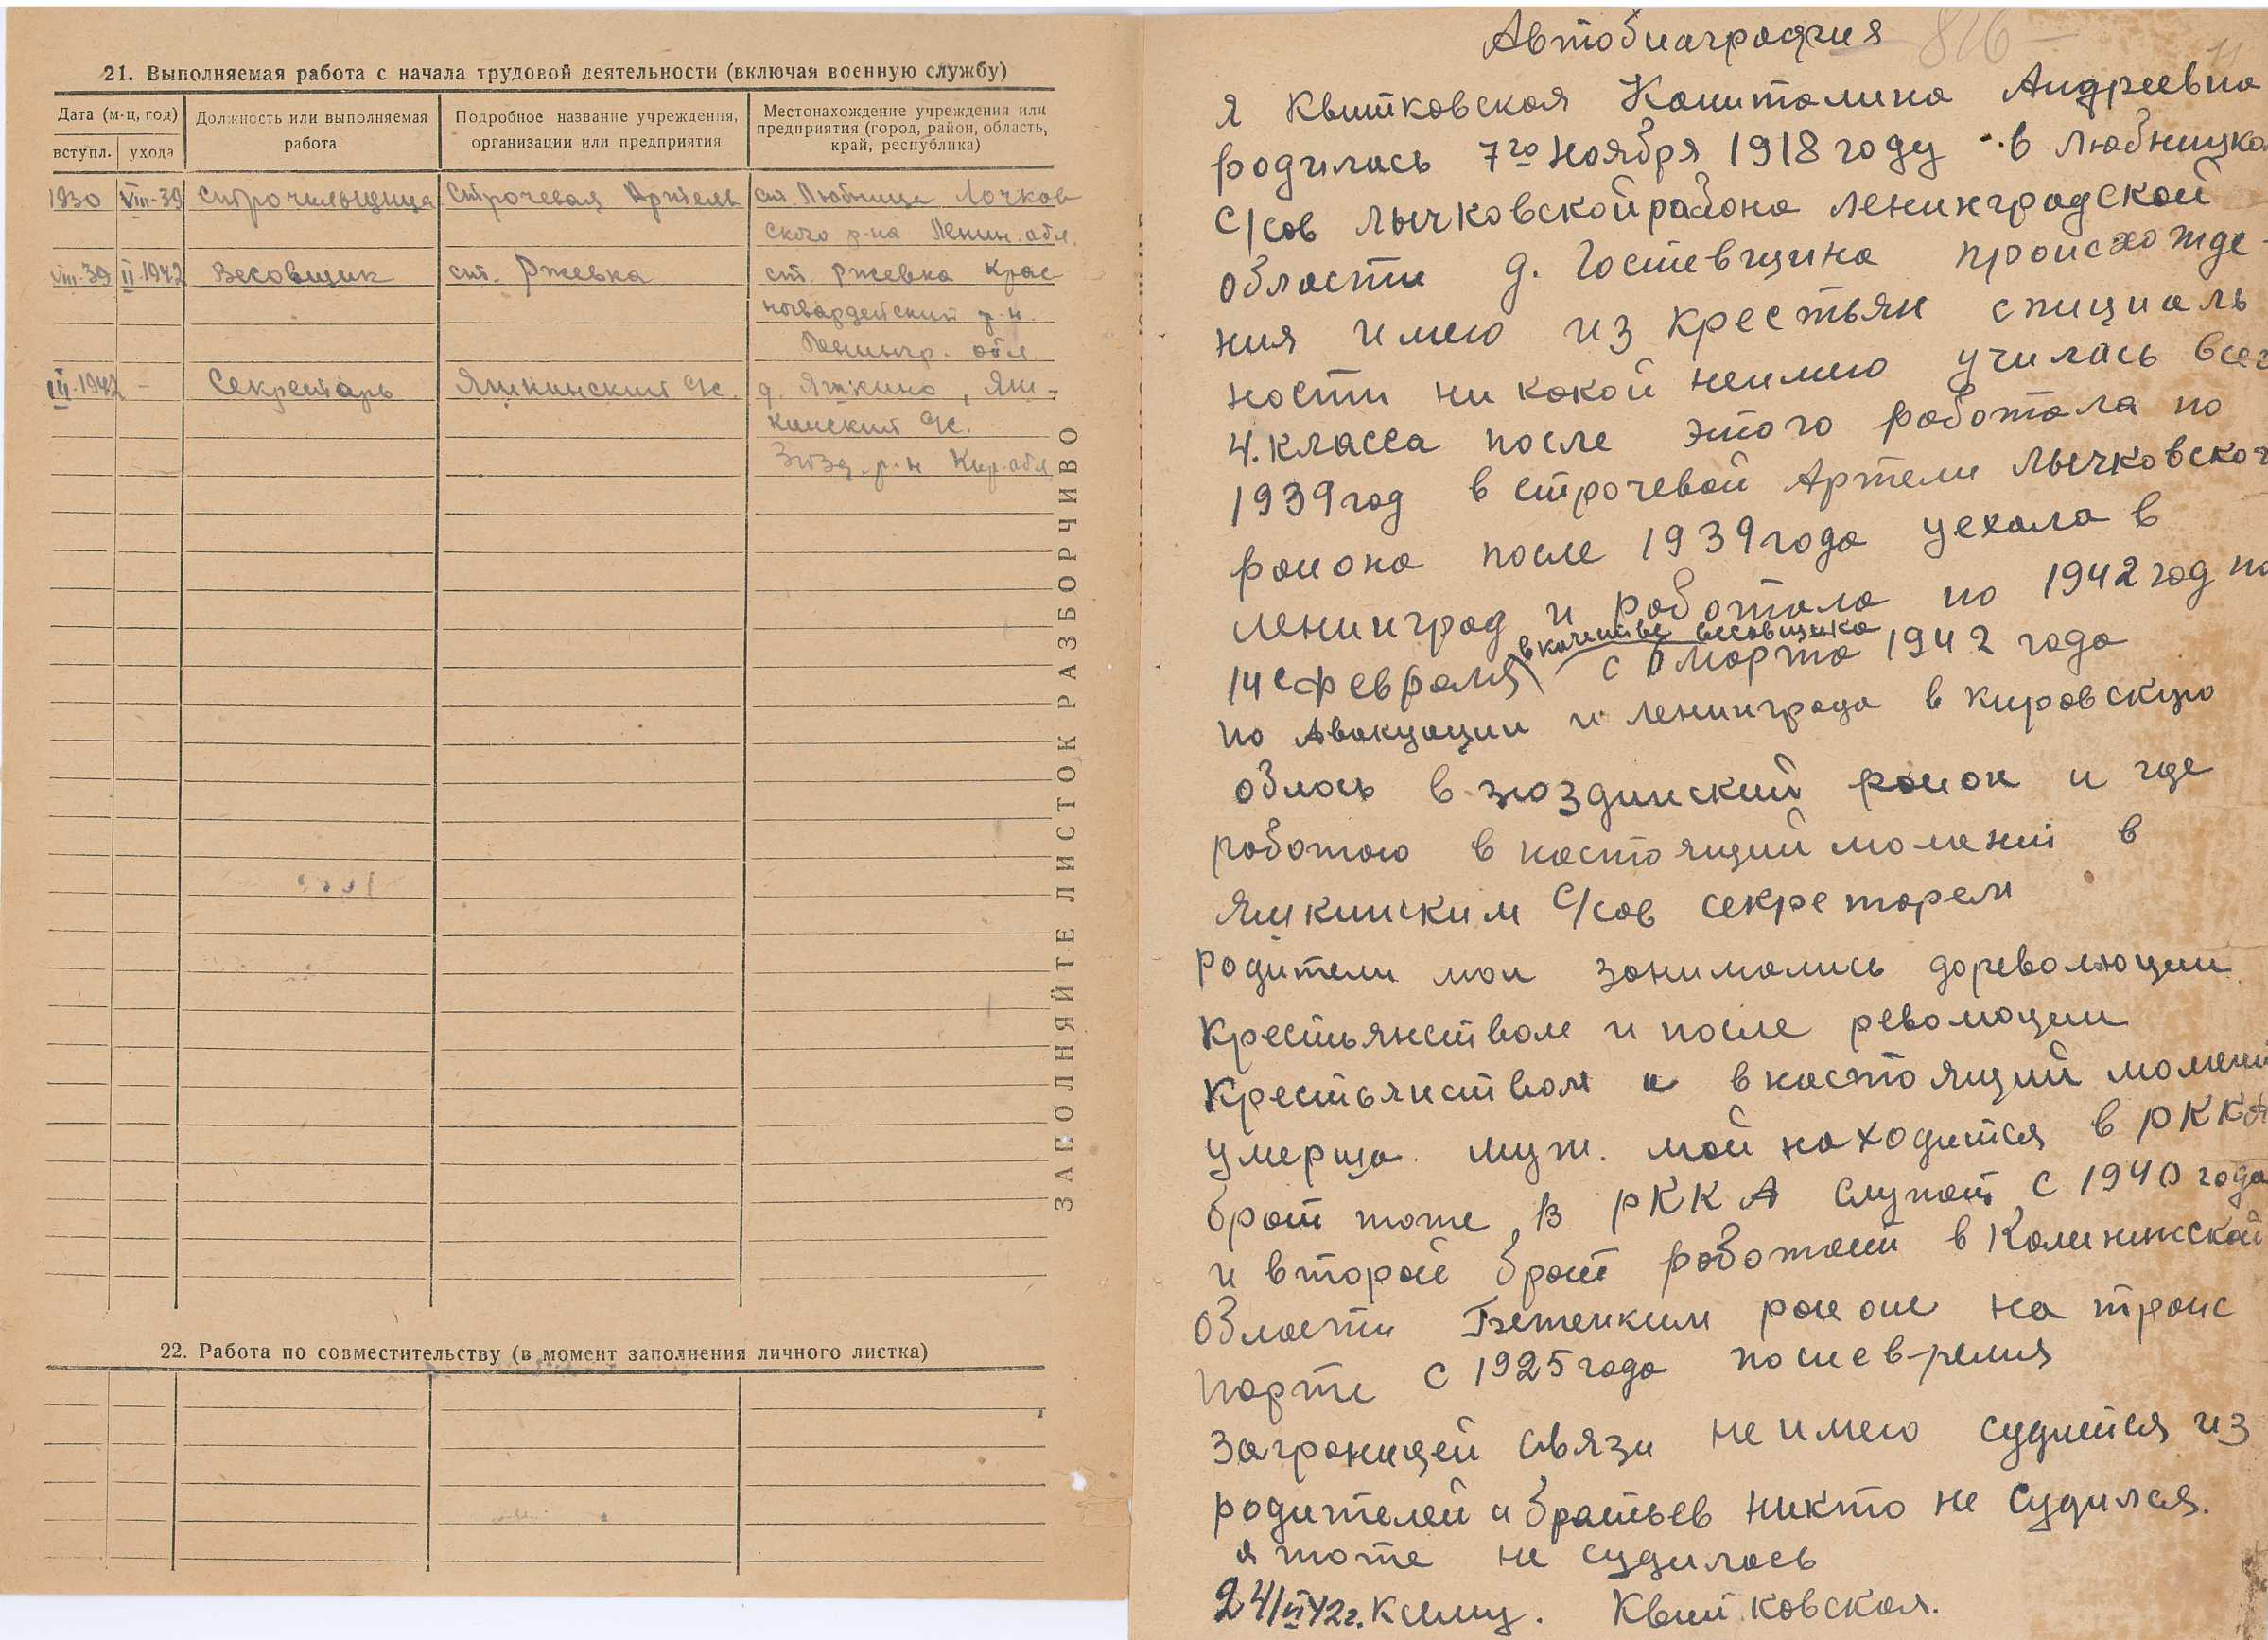 21. Выполняемая работа с начала трудовой деятельности (включая военную службу)
Дата (м-ц, год)
вступл.
ухода
Должность или выполняемая
работа
Подробное название учреждения,
организации или предприятия
Местонахождение учреждения или
предприятия (город, район, область,
край, республика)
1930 VIII-39 Строчильщица Строчевая Артель ст. Любница Лочков
ского р-на Ленин. обл.
VIII-39 II-1942 Весовщик ст. Ржевка ст. Ржевка Крас
ногвардейский р-н.
Ленингр. обл
III-1942 - Секретарь Яшкинский с/с. д. Яшкино, Яш-
кинский с/с.
Зюзд. р-н Кир. обл
ЗАПОЛНЯЙТЕ ЛИСТОК РАЗБОРЧИВО
22. Работа по совместительству (в момент заполнения личного листка)
Автобиаграфия
816
11
я Квитковская Капиталина Андреевна
родилась 7го ноября 1918 году в Любницко
с/сов Лычковской района ленинградской
области д. Гостевщина происхожде-
ния имею из крестьян спициаль
ности ни какой неимею училась всег
4. класса после этого работала по
1939 год в строчевой Артели Лычковског
раиона после 1939 года уехала в
ленинград и работала по 1942 год по
в качистве весовщика
14е февраля с марта 1942 года
по Авакуации и ленинграда в кировскую
облась в зюздинский раион и где
работаю в настоящий момент в
яшкинским с/сов секреторем
родители мои занимались дореволюции
крестьянством и после революции
крестьянством и внастоящий момент
умерша. муж. мой находится в РККА
брат тоже в РККА служит с 1940 года
и второй брат работает в Калининской
области Бежецким раионе на транс
порте с 1925 года посиевремия
заграницей связи неимею судится из
родителей и братьев никто не судился.
я тоже не судилась
24/VI 42г. Квитковская.